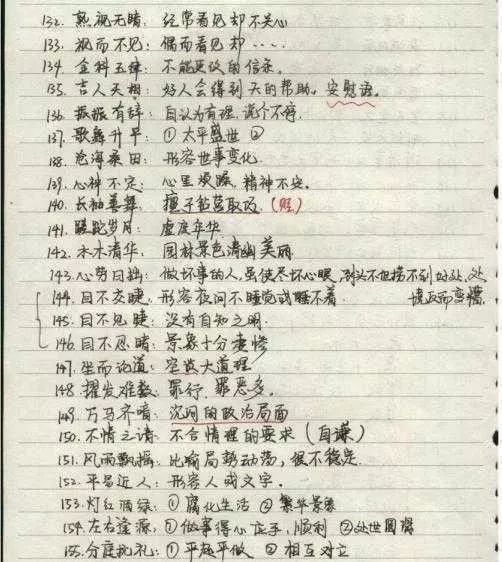 132. 熟视无睹：经常看见却不关心
133. 视而不见：偶而看见却·····
134. 金科玉律：不能更改的信条。
135. 吉人天相：好人会得到天的帮助。安慰语。
136. 振振有辞：自认为有理，说个不停
137. 歌舞升平：① 太平盛世 ②
138. 沧海桑田：形容世事变化.
139. 心神不定：心里烦躁，精神不安。
140. 长袖善舞：擅于钻营取巧.（贬）
141. 蹉跎岁月：虚度年华
142. 水木清华：园林景色清幽美丽
143. 心劳日拙：做坏事的人，虽使尽坏心眼，到头不但捞不到好处，处
境反而更糟.
144. 目不交睫：形容夜间不睡觉或睡不着
145. 目不见睫：没有自知之明.
146. 目不忍睹：景象十分凄惨
147. 坐而论道：空谈大道理
148. 擢发难数：罪行，罪恶多。
149. 万马齐喑：沉闷的政治局面
150. 不情之请：不合情理的要求（自谦）
151. 风雨飘摇：比喻局势动荡，很不稳定.
152. 平易近人：形容人或文字。
153. 灯红酒绿：① 腐化生活 ② 繁华景象
154. 左右逢源：① 做事得心应手，顺利 ② 处世圆滑
155. 分庭抗礼：① 平起平坐 ② 相互对立